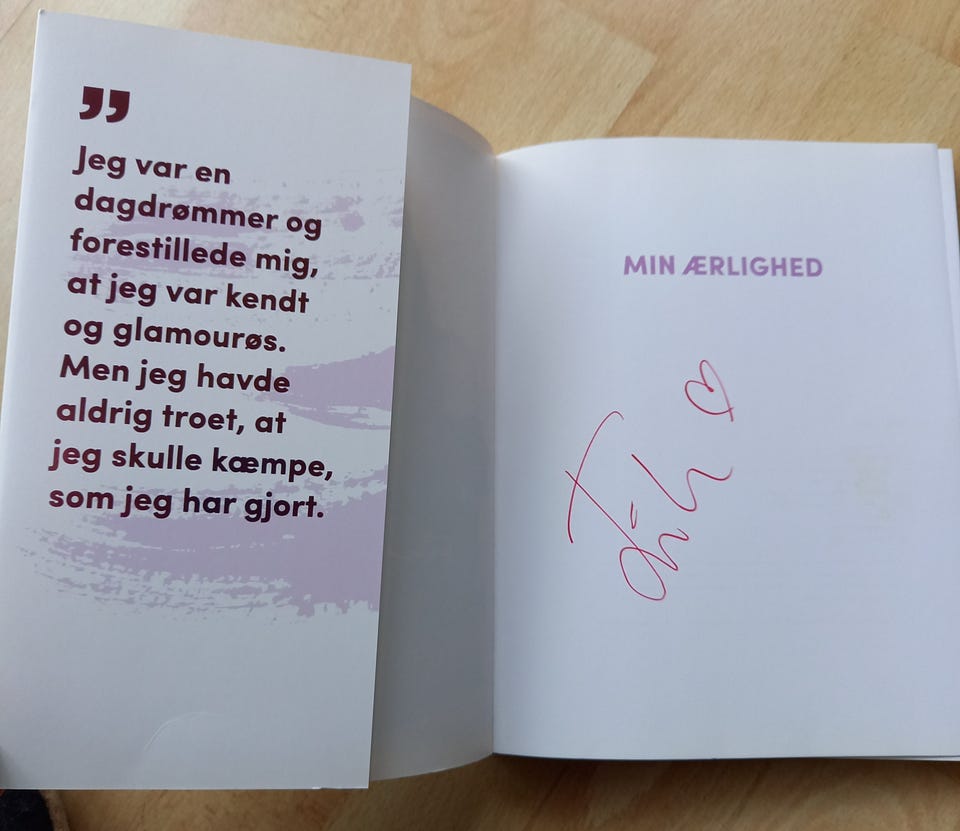 ”
Jeg var en
dagdrømmer og
forestillede mig,
at jeg var kendt
og glamourøs.
Men jeg havde
aldrig troet, at
jeg skulle kæmpe,
som jeg har gjort.
MIN ÆRLIGHED